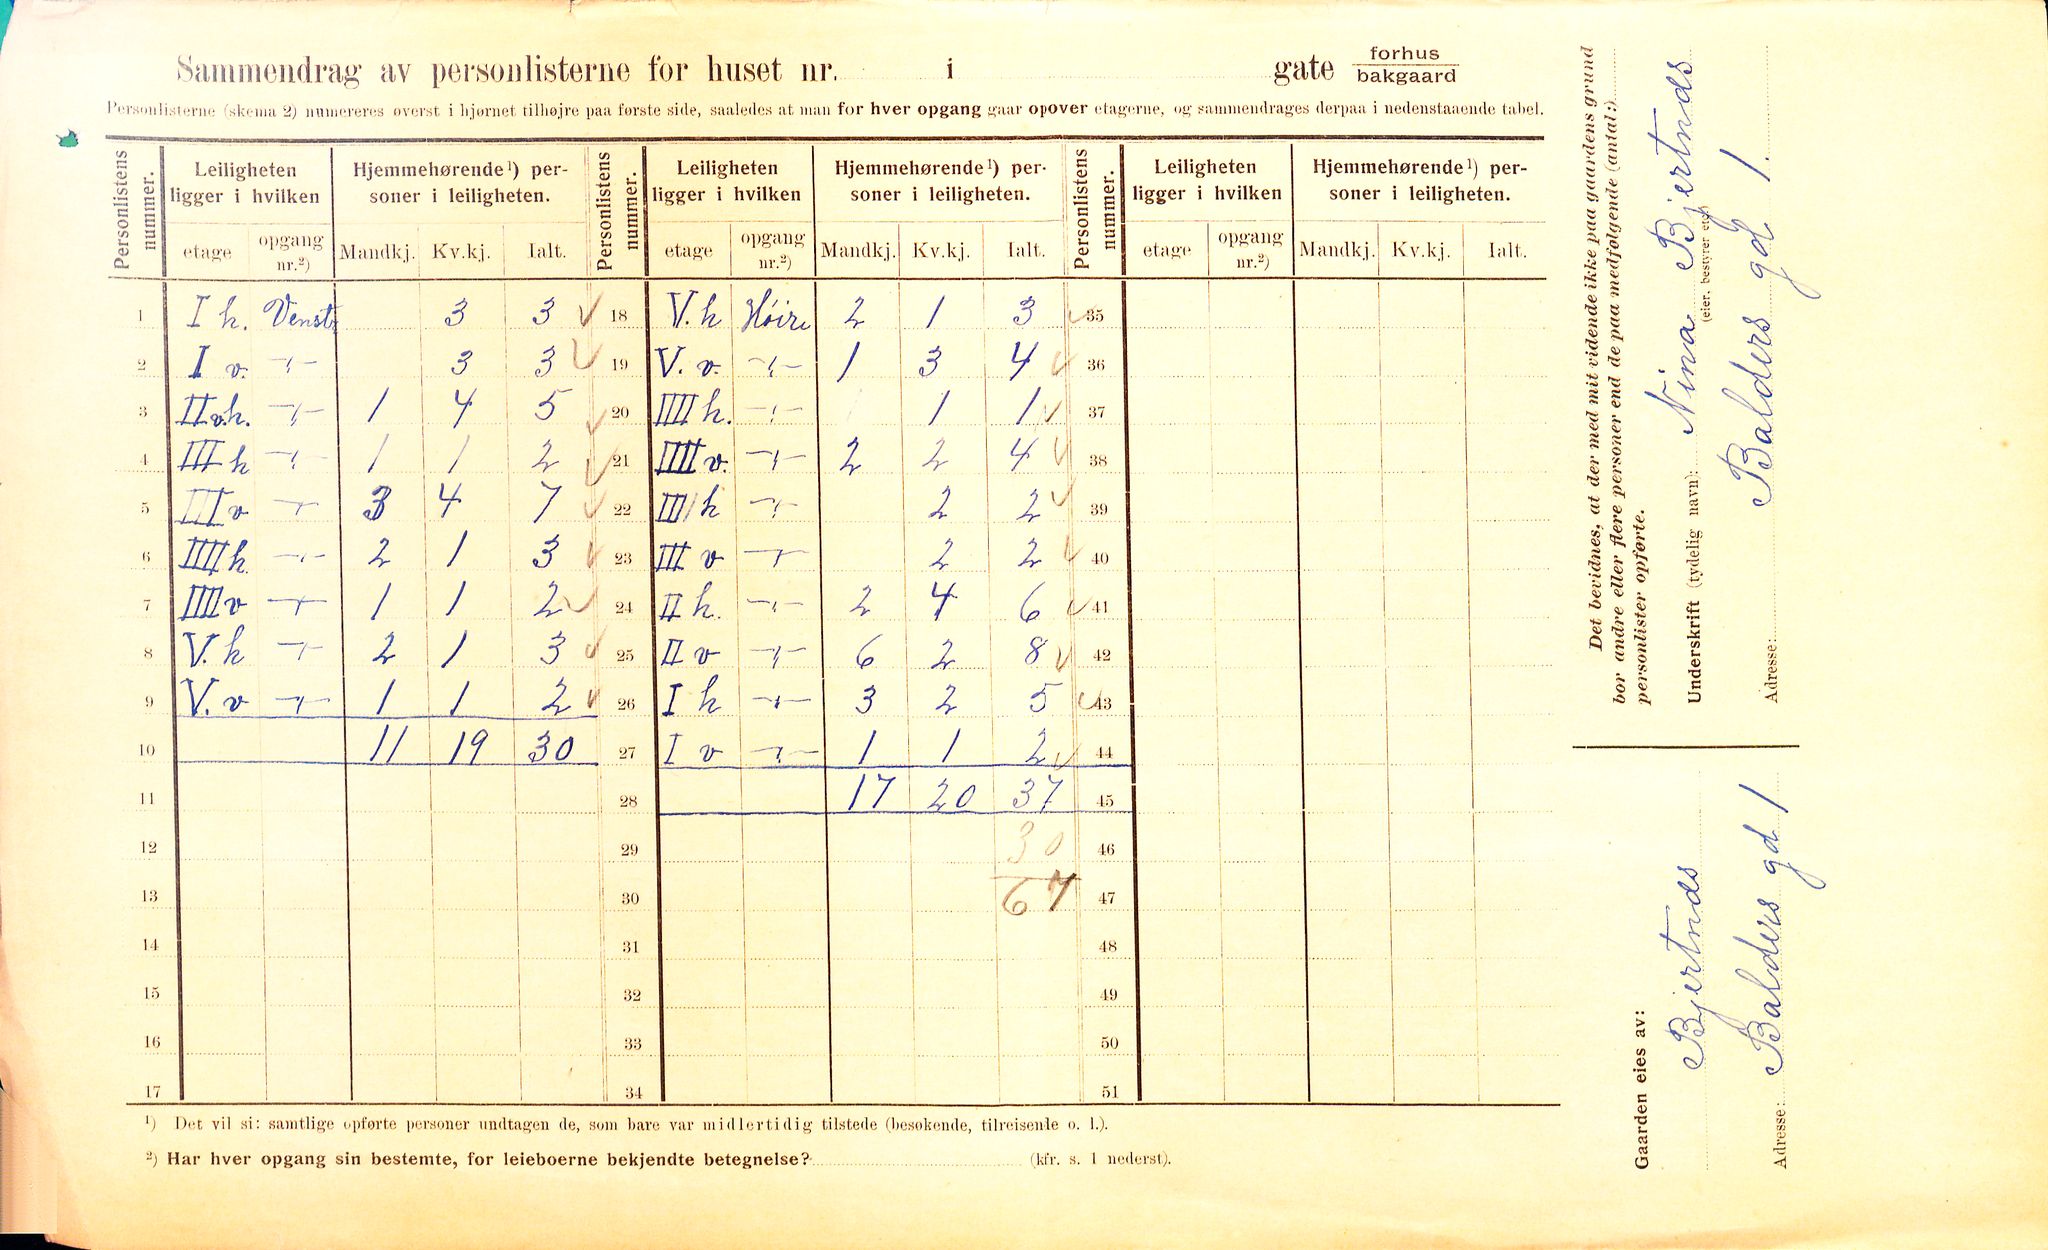 Sammendrag av personlisterne for huset nr. i gate forhus bakgaard
Personlisterne (skema 2) numereres øverst i hjørnet tilhøjre paa første side, saaledes at man for hver opgang gaar opover etagerne, og sammendrages derpaa i nedenstaaende tabel.
Personlistens nummer. Leiligheten ligger i hvilken Hjemmehørende ¹) personer i leiligheten. Personlistens nummer. Leiligheten ligger i hvilken Hjemmehørende ¹) personer i leiligheten. Personlistens nummer. Leiligheten ligger i hvilken Hjemmehørende ¹) personer i leiligheten.
etage opgang nr.²) Mandkj. Kv.kj. Ialt. etage opgang nr.²) Mandkj. Kv.kj. Ialt. etage opgang nr.²) Mandkj. Kv.kj. Ialt.
1 I h. Venstr 3 3 ✓ 18 V. h Høire 2 1 3 ✓ 35
2 I v. -"- 3 3 ✓ 19 V. v. -"- 1 3 4 ✓ 36
3 II v.h. -"- 1 4 5 ✓ 20 IIII h. -"- 1 1 ✓ 37
4 III h -"- 1 1 2 ✓ 21 IIII v. -"- 2 2 4 ✓ 38
5 III v -"- 3 4 7 ✓ 22 III h -"- 2 2 ✓ 39
6 IIII h -"- 2 1 3 ✓ 23 III v -"- 2 2 ✓ 40
7 IIII v -"- 1 1 2 ✓ 24 II h. -"- 2 4 6 ✓ 41
8 V. h -"- 2 1 3 ✓ 25 II v -"- 6 2 8 ✓ 42
9 V. v -"- 1 1 2 ✓ 26 I h -"- 3 2 5 ✓ 43
10 11 19 30 27 I v -"- 1 1 2 ✓ 44
11 28 17 20 37 45
12 29 30 46
13 30 67 47
14 31 48
15 32 49
16 33 50
17 34 51
¹) Det vil si: samtlige opførte personer undtagen de, som bare var midlertidig tilstede (besøkende, tilreisende o. l.).
²) Har hver opgang sin bestemte, for leieboerne bekjendte betegnelse? (kfr. s. 1 nederst).
Det bevidnes, at der med mit vidende ikke paa gaardens grund
bor andre eller flere personer end de paa medfølgende (antal:)
personlister opførte.
Underskrift (tydelig navn): Nina Bjertnæs
(eier, bestyrer etc.)
Adresse: Balders gd 1.
Gaarden eies av:
Bjertnæs
Adresse: Balders gd 1